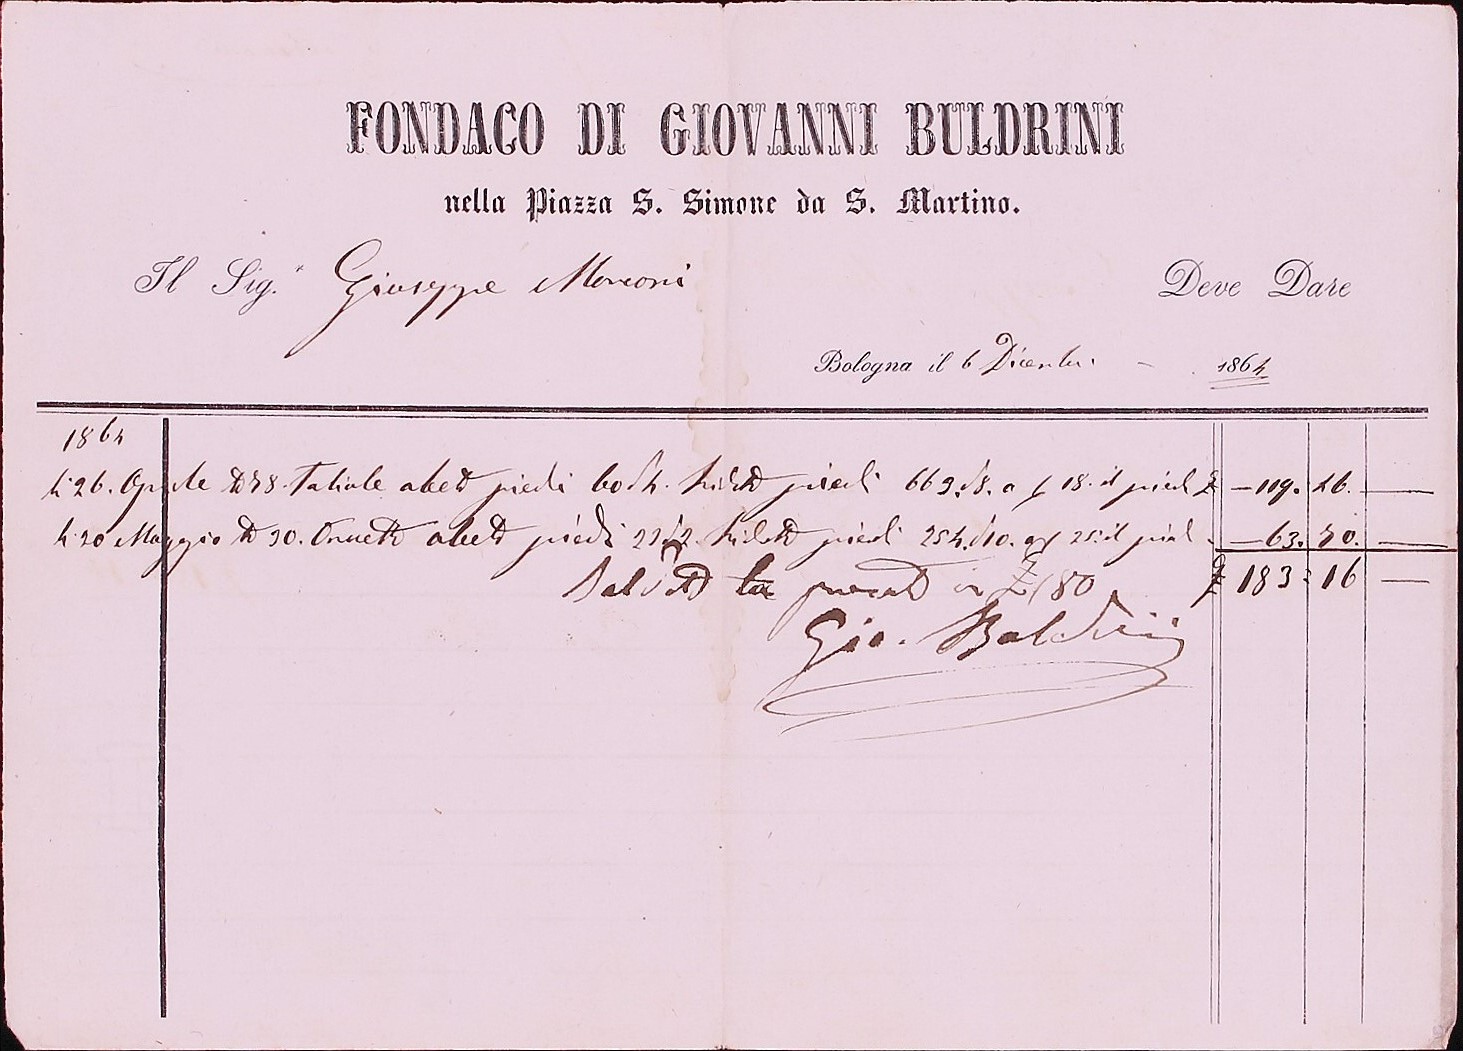 FONDACO DI GIOVANNI BULDRINI
nella Piazza S. Simone da S. Martino.
Il Sig.r Giuseppe Marconi Deve Dare
Bologna il 6 Dicembre 1864
1864
li 26. Aprile 78. Tavole abete piedi ridotto piedi 663. a 18. il piede £ 119. 46.
li 20 Maggio 30. abete piedi ridotto piedi 254. 10. a 25. il piede 63. 70.
Saldato la presente in £ 180 £ 183: 16
Gio. Buldrini